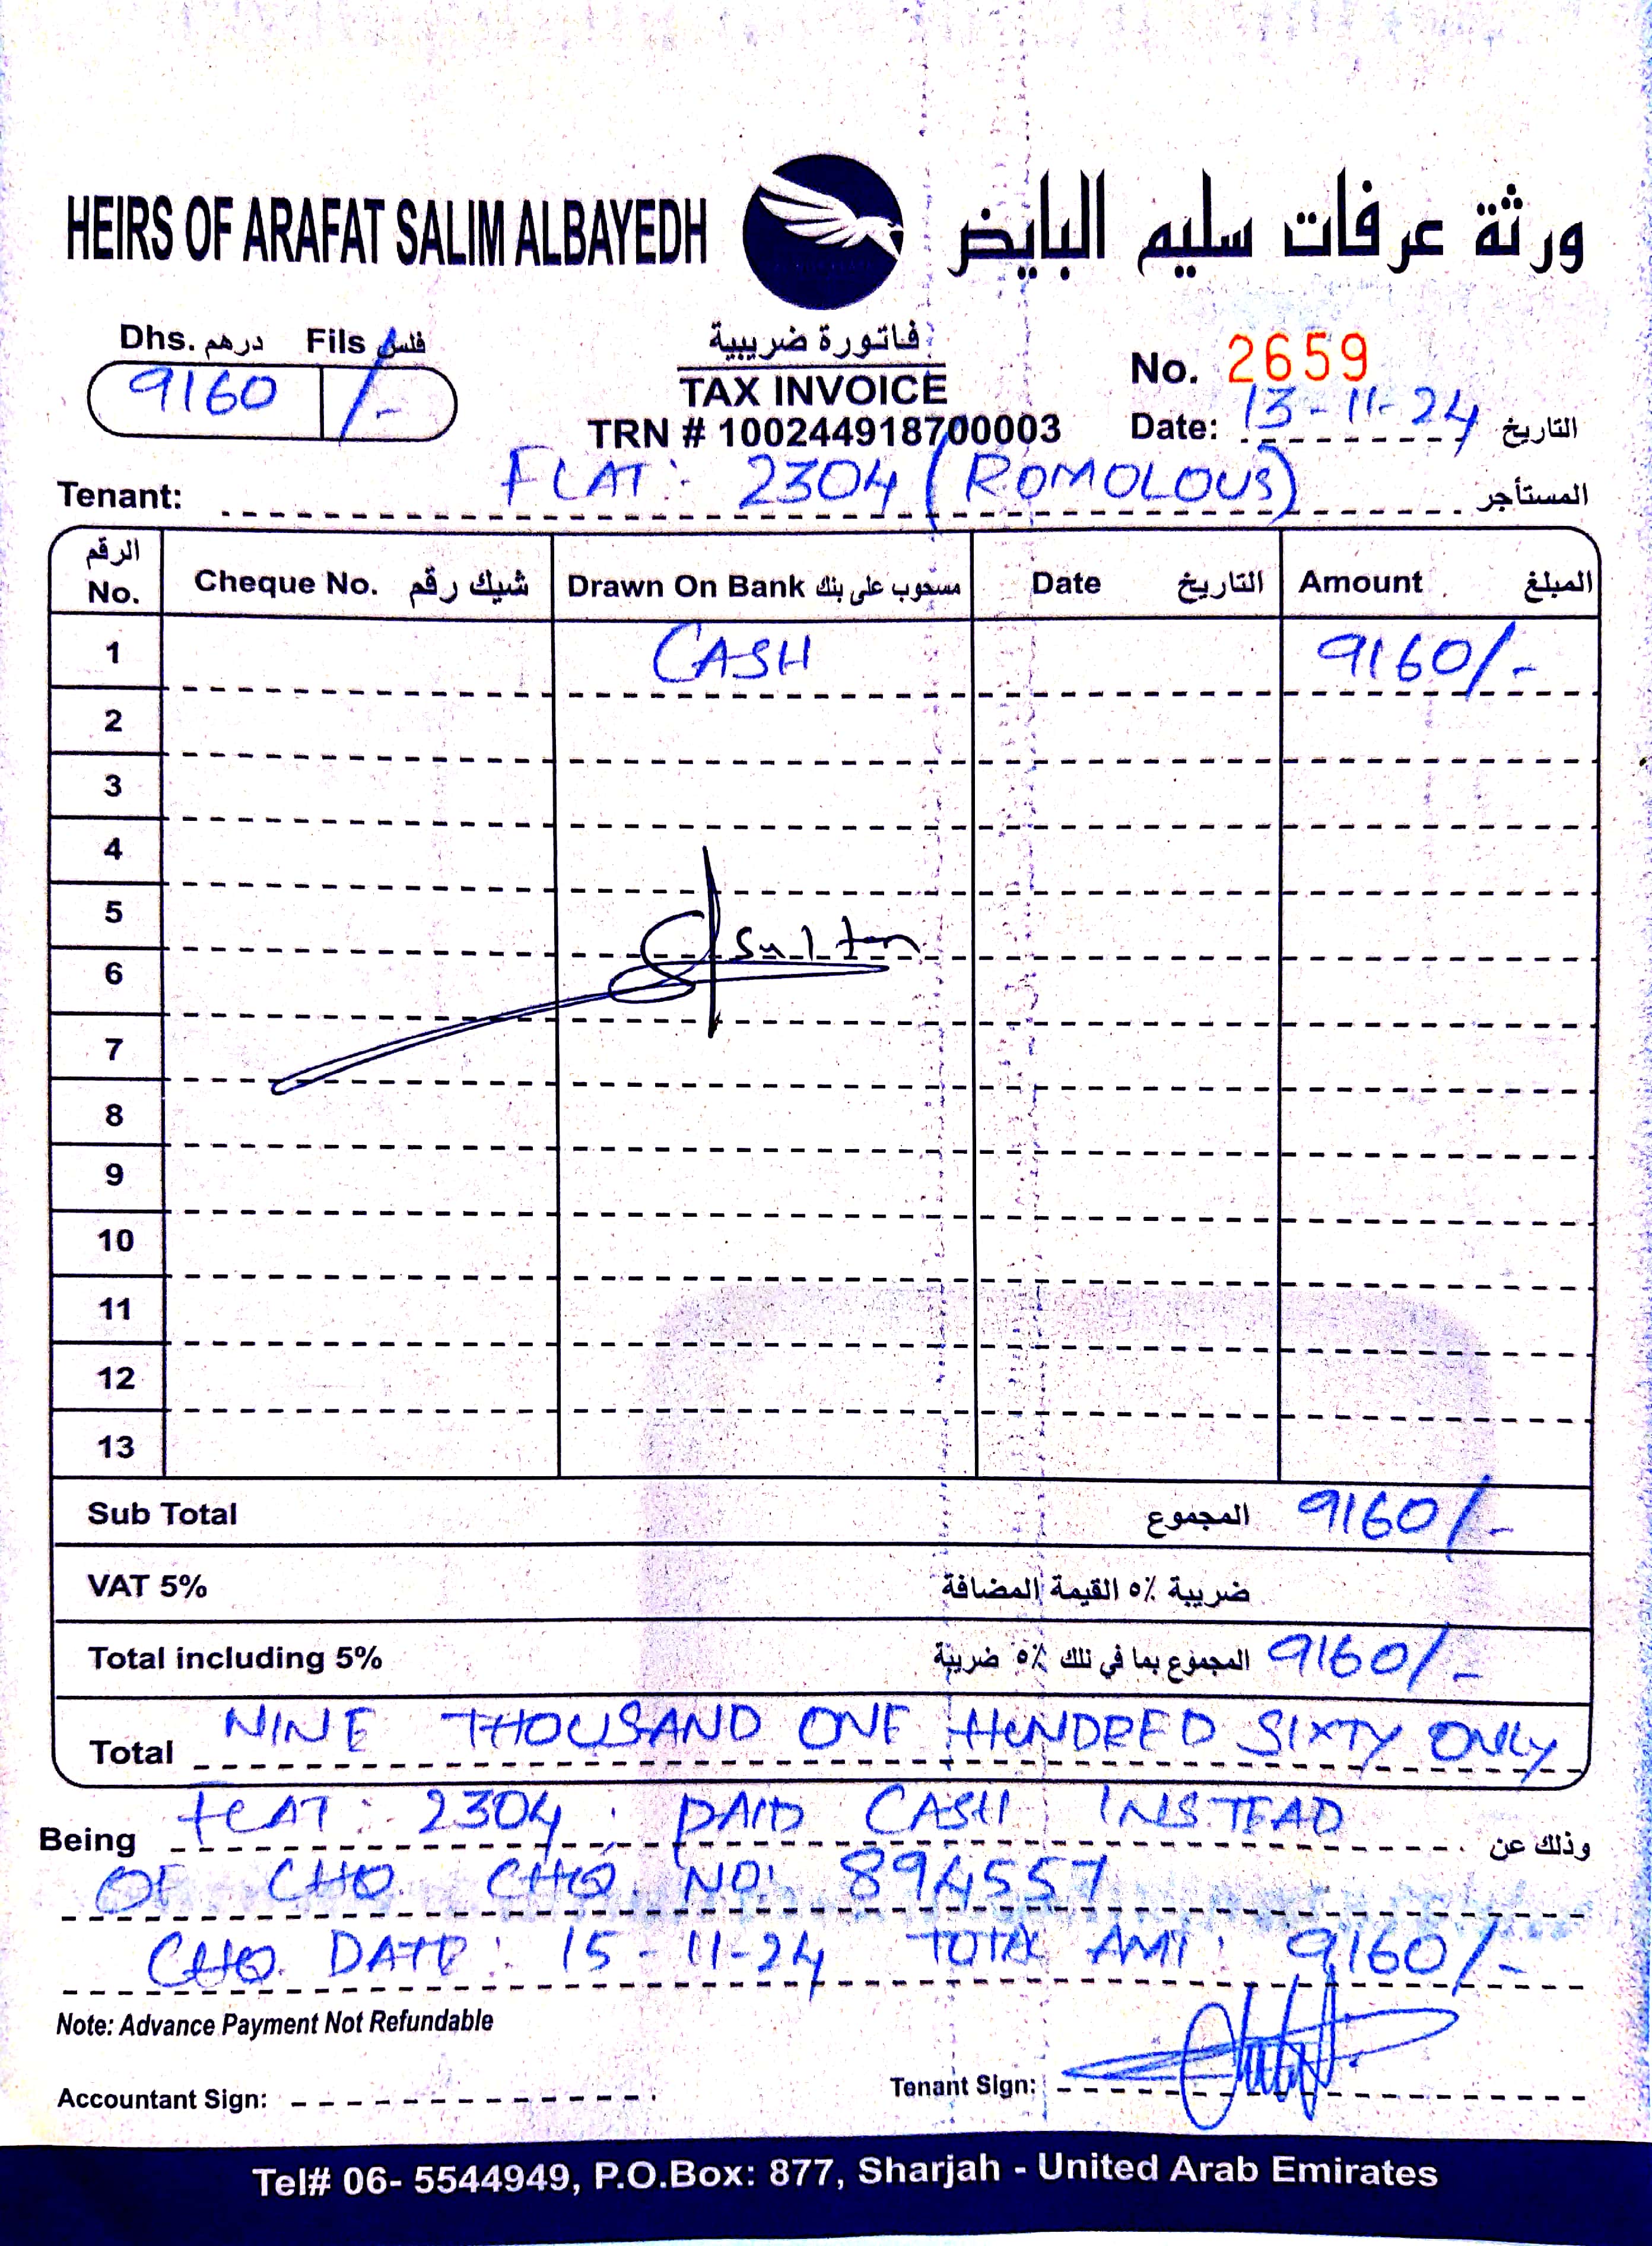 HEIRS OF ARAFAT SALIM ALBAYEDH ورثة عرفات سليم البايض
Dhs. درهم Fils فلس
9160 /-
فاتورة ضريبية
TAX INVOICE
TRN # 100244918700003
No. 2659
Date: 13-11-24 التاريخ
Tenant: FLAT: 2304 (ROMOLOUS) المستأجر
الرقم No. Cheque No. شيك رقم Drawn On Bank مسحوب على بنك Date التاريخ Amount المبلغ
1 CASH 9160/-
2
3
4
5
Sultan
6
7
8
9
10
11
12
13
Sub Total المجموع 9160/-
VAT 5% ضريبة ٥٪ القيمة المضافة
Total including 5% المجموع بما في تلك ٥٪ ضريبة 9160/-
Total NINE THOUSAND ONE HUNDRED SIXTY ONLY
Being FLAT: 2304, PAID CASH INSTEAD وذلك عن
OF CHQ. CHQ. NO: 894557
CHQ. DATE: 15-11-24 TOTAL AMT: 9160/-
Note: Advance Payment Not Refundable
Accountant Sign: Tenant Sign:
Tel# 06- 5544949, P.O.Box: 877, Sharjah - United Arab Emirates